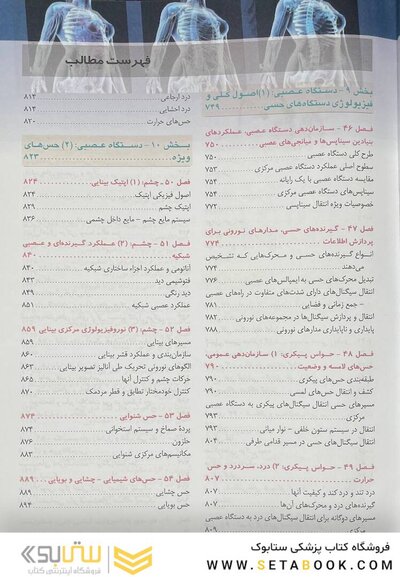 فهرست مطالب
بخش ۹ - دستگاه عصبی: (۱) اصول کلی و
فیزیولوژی دستگاه‌های حسی ۷۴۹
فصل ۴۶ - سازمان‌دهی دستگاه عصبی، عملکردهای
بنیادین سیناپس‌ها و میانجی‌های عصبی ۷۵۰
طرح کلی دستگاه عصبی ۷۵۰
سطوح اصلی عملکرد دستگاه عصبی مرکزی ۷۵۳
مقایسه دستگاه عصبی با یک رایانه ۷۵۴
سیناپس‌های دستگاه عصبی مرکزی ۷۵۴
خصوصیات ویژه انتقال سیناپسی ۷۷۲
فصل ۴۷ - گیرنده‌های حسی، مدارهای نورونی برای
پردازش اطلاعات ۷۷۴
انواع گیرنده‌های حسی و محرک‌هایی که تشخیص
می‌دهند ۷۷۴
تبدیل محرک‌های حسی به ایمپالس‌های عصبی ۷۷۶
انتقال سیگنال‌های دارای شدت‌های متفاوت در راه‌های عصبی
- جمع زمانی و فضایی ۷۸۱
انتقال و پردازش سیگنال‌ها در مجموعه‌های نورونی ۷۸۲
پایداری و ناپایداری مدارهای نورونی ۷۸۸
فصل ۴۸ - حواس پیکری: ۱) سازمان‌دهی عمومی،
حس‌های لامسه و وضعیت ۷۹۰
طبقه‌بندی حس‌های پیکری ۷۹۰
کشف و انتقال حس‌های لمسی ۷۹۰
مسیرهای حسی انتقال سیگنال‌های پیکری به دستگاه عصبی
مرکزی ۷۹۳
انتقال در سیستم ستون خلفی - نوار میانی ۷۹۳
انتقال سیگنال‌های حسی در مسیر قدامی طرفی ۸۰۴
فصل ۴۹ - حواس پیکری: ۲) درد، سردرد و حس
حرارت ۸۰۷
درد تند و درد کند و کیفیت آنها ۸۰۷
گیرنده‌های درد و محرک‌های آن ۸۰۷
مسیرهای دوگانه برای انتقال سیگنال‌های درد به دستگاه عصبی
۸۰۹
درد ارجاعی ۸۱۴
درد احشایی ۸۱۴
حس‌های حرارت ۸۲۰
بخش ۱۰ - دستگاه عصبی: (۲) حس‌های
ویژه ۸۲۳
فصل ۵۰ - چشم: (۱) اپتیک بینایی ۸۲۴
اصول فیزیکی اپتیک ۸۲۴
اپتیک چشم ۸۲۹
سیستم مایع چشم - مایع داخل چشمی ۸۳۶
فصل ۵۱ - چشم: (۲) عملکرد گیرنده‌ای و عصبی
شبکیه ۸۴۰
آناتومی و عملکرد اجزاء ساختاری شبکیه ۸۴۰
فتوشیمی دید ۸۴۳
دید رنگی ۸۴۹
عملکرد عصبی شبکیه ۸۵۱
فصل ۵۲ - چشم: (۳) نوروفیزیولوژی مرکزی بینایی ۸۵۹
مسیرهای بینایی ۸۵۹
سازمان‌بندی و عملکرد قشر بینایی ۸۶۰
الگوهای نورونی تحریک طی آنالیز تصویر بینایی ۸۶۳
حرکات چشم و کنترل آنها ۸۶۵
کنترل خودمختار تطابق و قطر مردمک ۸۷۰
فصل ۵۳ - حس شنوایی ۸۷۴
پردهٔ صماخ و سیستم استخوانی ۸۷۴
حلزون ۸۷۶
مکانیسم‌های مرکزی شنوایی ۸۸۳
فصل ۵۴ - حس‌های شیمیایی - چشایی و بویایی ۸۸۹
حس چشایی ۸۸۹
حس بویایی ۸۹۴
ستابوک
فروشگاه اینترنتی کتاب
فروشگاه کتاب پزشکی ستابوک
WWW.SETABOOK.COM